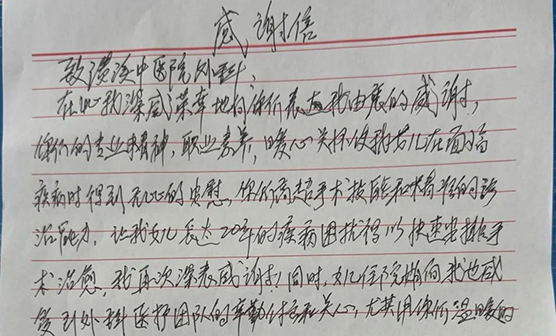 感谢信
致潢溪中医院外科:
在此我深感荣幸地向你们表达我由衷的感谢,
你们的专业精神,职业素养,暖心关怀使我女儿在面临
疾病时得到无比的安慰,你们高超手术技能和精湛的诊
治能力,让我女儿长达20年的疾病困扰得以快速安排手
术治愈,我再次深表感谢!同时,女儿住院期间我也感
受到外科医护团队的辛勤付出和关心,尤其是你们温暖的